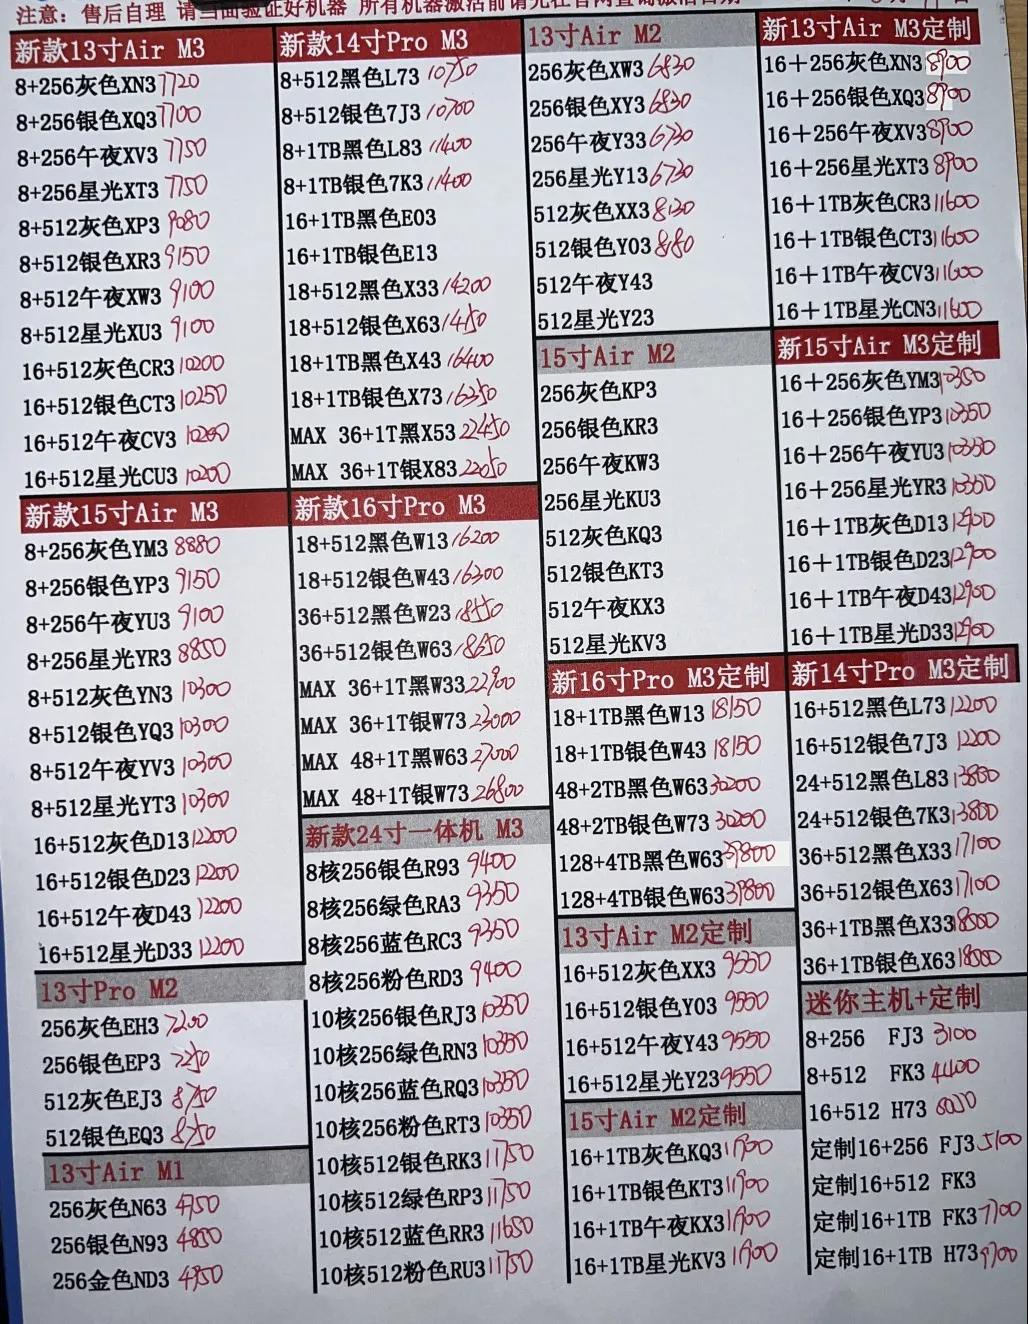 注意：售后自理 请当面验证好机器 所有机器激活前请先在官网查询激活日期
新款13寸Air M3
8+256灰色XN3 7720
8+256银色XQ3 7700
8+256午夜XV3 7750
8+256星光XT3 7750
8+512灰色XP3 9080
8+512银色XR3 9150
8+512午夜XW3 9100
8+512星光XU3 9100
16+512灰色CR3 10200
16+512银色CT3 10250
16+512午夜CV3 10200
16+512星光CU3 10200
新款15寸Air M3
8+256灰色YM3 8880
8+256银色YP3 9150
8+256午夜YU3 9100
8+256星光YR3 8850
8+512灰色YN3 10300
8+512银色YQ3 10300
8+512午夜YV3 10300
8+512星光YT3 10300
16+512灰色D13 12200
16+512银色D23 12200
16+512午夜D43 12200
16+512星光D33 12200
13寸Pro M2
256灰色EH3 7200
256银色EP3 7250
512灰色EJ3 8750
512银色EQ3 8750
13寸Air M1
256灰色N63 4750
256银色N93 4850
256金色ND3 4950
新款14寸Pro M3
8+512黑色L73 10750
8+512银色7J3 10700
8+1TB黑色L83 11400
8+1TB银色7K3 11400
16+1TB黑色E03
16+1TB银色E13
18+512黑色X33 14200
18+512银色X63 14150
18+1TB黑色X43 16400
18+1TB银色X73 16350
MAX 36+1T黑X53 22450
MAX 36+1T银X83 22050
新款16寸Pro M3
18+512黑色W13 16200
18+512银色W43 16300
36+512黑色W23 18550
36+512银色W63 18650
MAX 36+1T黑W33 22900
MAX 36+1T银W73 23000
MAX 48+1T黑W63 27000
MAX 48+1T银W73 26800
新款24寸一体机 M3
8核256银色R93 9400
8核256绿色RA3 9350
8核256蓝色RC3 9350
8核256粉色RD3 9400
10核256银色RJ3 10350
10核256绿色RN3 10350
10核256蓝色RQ3 10350
10核256粉色RT3 10350
10核512银色RK3 11750
10核512绿色RP3 11750
10核512蓝色RR3 11650
10核512粉色RU3 11750
13寸Air M2
256灰色XW3 6830
256银色XY3 6830
256午夜Y33 6730
256星光Y13 6730
512灰色XX3 8130
512银色Y03 8180
512午夜Y43
512星光Y23
15寸Air M2
256灰色KP3
256银色KR3
256午夜KW3
256星光KU3
512灰色KQ3
512银色KT3
512午夜KX3
512星光KV3
新16寸Pro M3定制
18+1TB黑色W13 18150
18+1TB银色W43 18150
48+2TB黑色W63 30200
48+2TB银色W73 30200
128+4TB黑色W63 39800
128+4TB银色W63 39800
13寸Air M2定制
16+512灰色XX3 9550
16+512银色Y03 9550
16+512午夜Y43 9550
16+512星光Y23 9550
15寸Air M2定制
16+1TB灰色KQ3 11900
16+1TB银色KT3 11900
16+1TB午夜KX3 11900
16+1TB星光KV3 11900
新13寸Air M3定制
16＋256灰色XN3 8900
16＋256银色XQ3 8900
16＋256午夜XV3 8900
16＋256星光XT3 8900
16＋1TB灰色CR3 11600
16＋1TB银色CT3 11600
16＋1TB午夜CV3 11600
16＋1TB星光CN3 11600
新15寸Air M3定制
16＋256灰色YM3 10350
16＋256银色YP3 10350
16＋256午夜YU3 10350
16＋256星光YR3 10350
16＋1TB灰色D13 12900
16＋1TB银色D23 12900
16＋1TB午夜D43 12900
16＋1TB星光D33 12900
新14寸Pro M3定制
16+512黑色L73 12200
16+512银色7J3 12200
24+512黑色L83 13800
24+512银色7K3 13800
36+512黑色X33 17100
36+512银色X63 17100
36+1TB黑色X33 18500
36+1TB银色X63 18500
迷你主机+定制
8+256 FJ3 3100
8+512 FK3 4400
16+512 H73 8050
定制16+256 FJ3 5100
定制16+512 FK3
定制16+1TB FK3 7700
定制16+1TB H73 9700